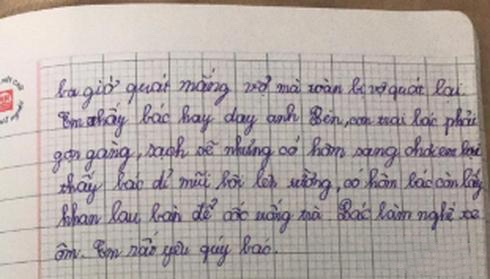 ba giờ quát mắng vợ mà toàn bị vợ quát lại.
Em thấy bác hay dạy anh Bên, con trai bác phải
gọn gàng, sạch sẽ nhưng có hôm sang chơi em lại
thấy bác dỉ mũi bôi lên tường, có hôm bác còn lấy
khăn lau bàn để cốc uống trà. Bác làm nghề xe
ôm. Em rất yêu quý bác.